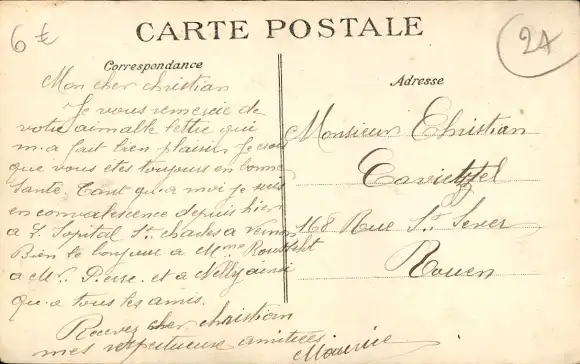 6 €
CARTE POSTALE
24
Correspondance
Mon cher christian
Je vous remercie de
votre aimable lettre qui
m'a fait bien plaisir Je crois
que vous êtes toujours en bonne
santé. Tant qu'a moi je suis
en convalescence depuis hier
a l'hopital St. chales a vernon
Bien le bonjour a Mme Rousselet
a Mr. Pierre. et a Nelly ainsi
qu'a tous les amis.
Recevez cher christian
mes respectueuse amitiées
Maurice
Adresse
Monsieur Christian
168 Rue St. Sever
Rouen